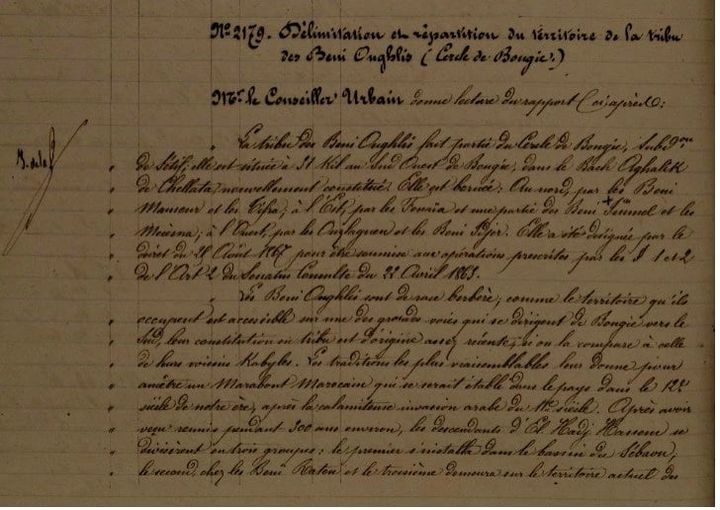 Nº 2179. Délimitation et répartition du territoire de la tribu
des Beni Oughlis (Cercle de Bougie.)
Mr. le Conseiller Urbain donne lecture du rapport Ci après:
La tribu des Beni Oughlis fait partie du Cercle de Bougie, Subdon
de Sétif; elle est située à 51 Kil au Sud Ouest de Bougie, dans le Bach Aghalik
de Chellata, nouvellement constitué. Elle est bornée: Au nord, par les Beni
Mansour et les; à l'Est, par les Fenaïa et une partie des Beni et les
; à l'Ouest, par les Ouzlaguen et les Beni. Elle a été désignée par le
décret du 28 Août 1867 pour être soumise aux opérations prescrites par les § 1 et 2
de l'Art 2 du Senatus Consulte du 22 Avril 1863.
Les Beni Oughlis sont de race berbère; comme le territoire qu'ils
occupent est accessible sur une des grandes voies qui se dirigent de Bougie vers le
Sud, leur constitution en tribu est d'origine assez récente, si on la compare à celle
de leurs voisins Kabyles. Les traditions les plus vraisemblables leur donne pour
ancêtre un Marabout Marocain qui se serait établi dans le pays dans le 12e
siècle de notre ère, après la calamiteuse invasion arabe du 11e siècle. Après avoir
vécu réunis pendant 300 ans environ, les descendants d'El Hadj Hassene se
divisèrent en trois groupes: le premier s'installa dans le bassin du Sébaou,
le second, chez les Beni Raten et le troisième demeura sur le territoire actuel des